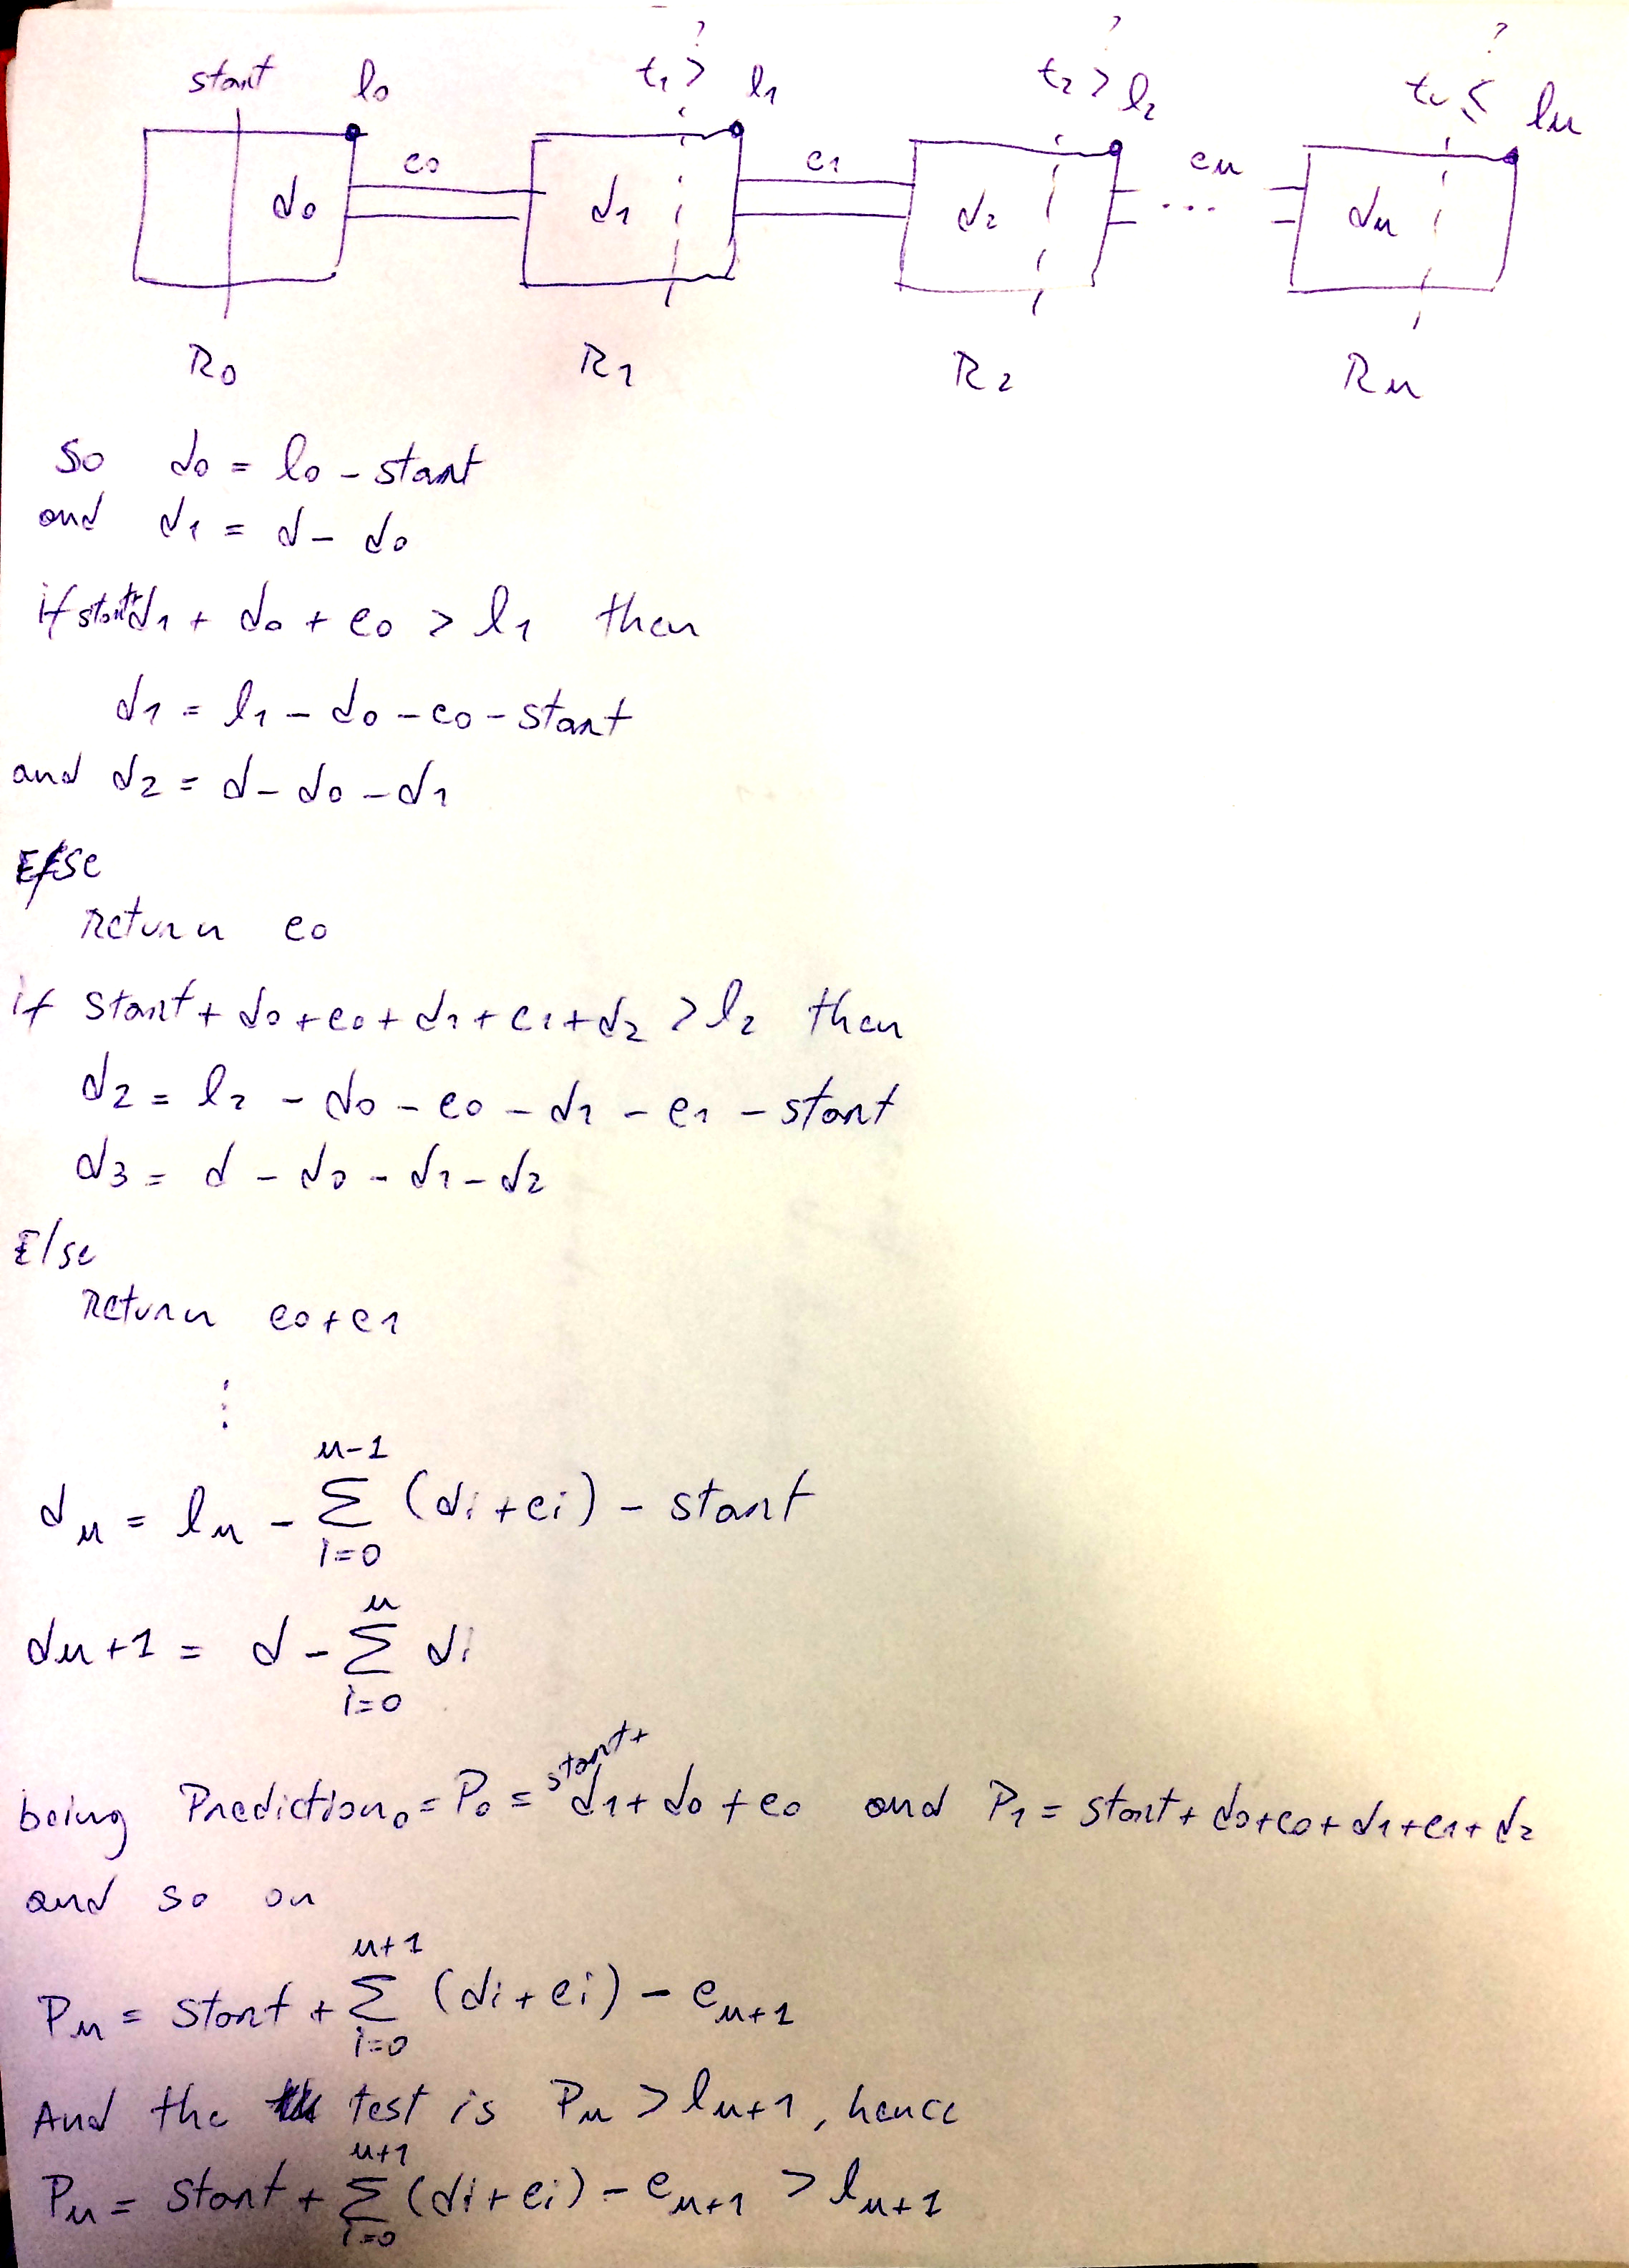 start l₀ t₁ >? l₁ t₂ >? l₂ tₙ ≤? lₙ
d₀ e₀ d₁ e₁ d₂ eₙ ... dₙ
R₀ R₁ R₂ Rₙ
so d₀ = l₀ - start
and d₁ = d - d₀
if start+d₁ + d₀ + e₀ > l₁ then
d₁ = l₁ - d₀ - e₀ - start
and d₂ = d - d₀ - d₁
Else
return e₀
if start + d₀ + e₀ + d₁ + e₁ + d₂ > l₂ then
d₂ = l₂ - d₀ - e₀ - d₁ - e₁ - start
d₃ = d - d₀ - d₁ - d₂
Else
return e₀ + e₁
⋮
dₙ = lₙ - ∑_{i=0}^{n-1} (dᵢ + eᵢ) - start
dₙ+1 = d - ∑_{i=0}^{n} dᵢ
being Prediction₀ = P₀ = start + d₁ + d₀ + e₀ and P₁ = start + d₀ + e₀ + d₁ + e₁ + d₂
and so on
Pₙ = start + ∑_{i=0}^{n+1} (dᵢ + eᵢ) - eₙ₊₁
And the test is Pₙ > lₙ₊₁, hence
Pₙ = start + ∑_{i=0}^{n+1} (dᵢ + eᵢ) - eₙ₊₁ > lₙ₊₁